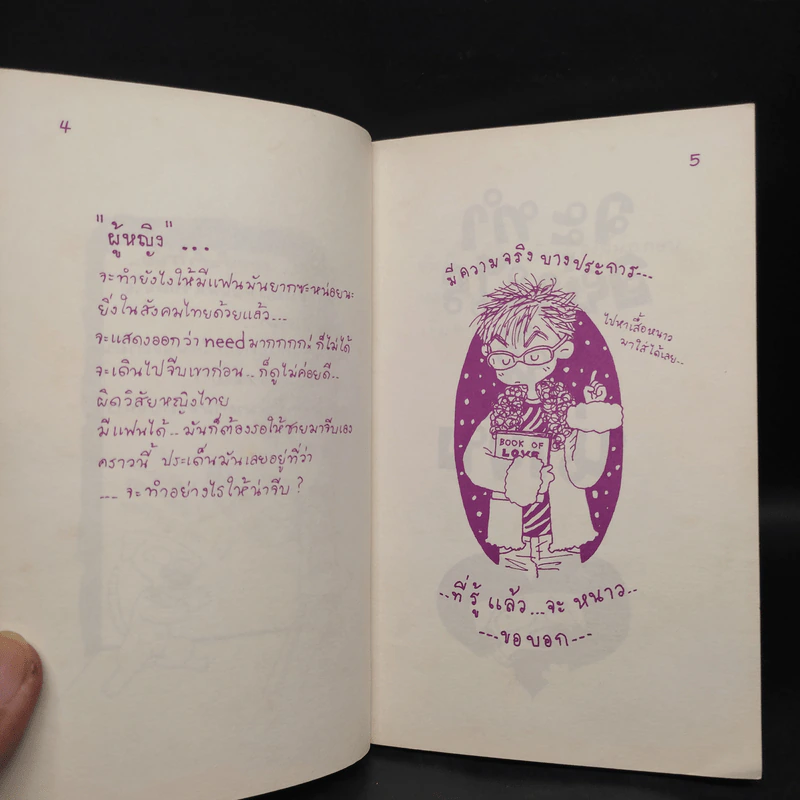 4
"ผู้หญิง" ...
จะทำยังไงให้มีแฟนมันยากซะหน่อยนะ
ยิ่งในสังคมไทยด้วยแล้ว...
จะแสดงออกว่า needมากกกก! ก็ไม่ได้
จะเดินไปจีบเขาก่อน..ก็ดูไม่ค่อยดี..
ผิดวิสัยหญิงไทย
มีแฟนได้..มันก็ต้องรอให้ชายมาจีบเอง
คราวนี้ ประเด็นมันเลยอยู่ที่ว่า
.... จะทำอย่างไรให้น่าจีบ ?
5
มีความจริง บางประการ...
ไปหาเสื้อหนาว
มาใส่ได้เลย..
BOOK OF
LOVE
..ที่รู้ แล้ว...จะ หนาว..
---ขอบอก---